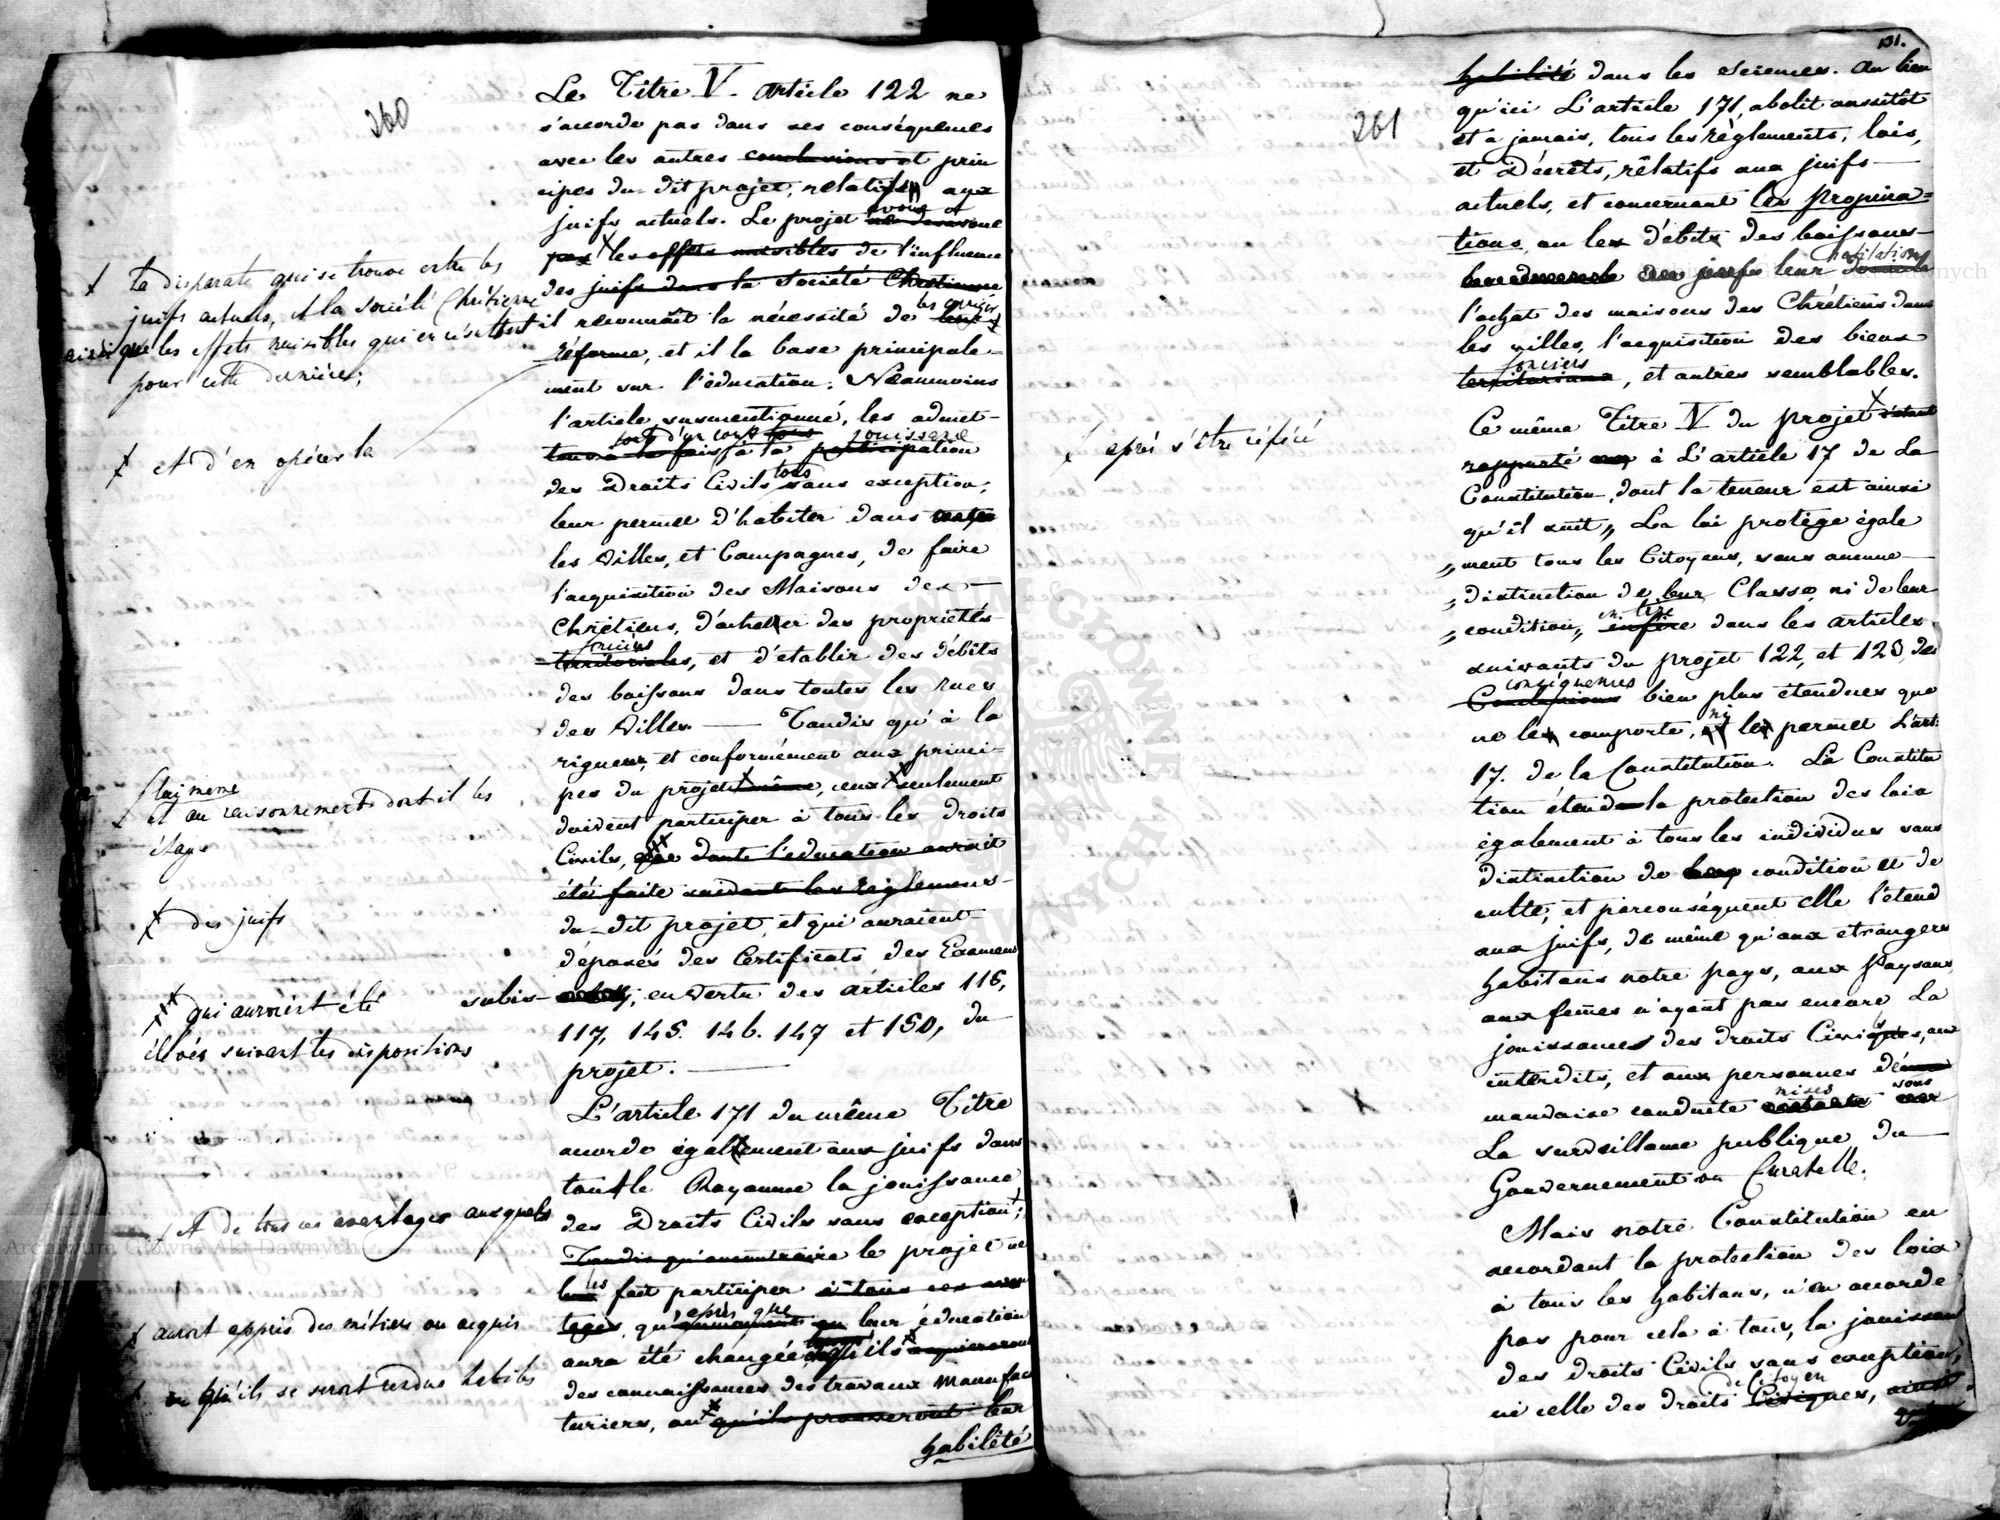 260
Le Titre V. article 122 ne
s'accorde pas dans ses conséquences
avec les autres conclusions et prin
cipes du-dit projet, relatifs aux
juifs actuels. Le projet
avoue et
pas les effets nuisibles de l'influence
des juifs dans la Société Chrétienne
il reconnaît la nécessité de leur
les corriger
réforme, et il la base principale-
ment sur l'éducation. Néanmoins
l'article susmentionné, les admet-
tout d'un coup
jouissance
tous à la fois à la participation
des Droits Civils sans exception;
tous
leur permet d'habiter dans toutes
les Villes, et Campagnes, de faire
l'acquisition des Maisons des
Chrétiens, d'acheter des propriétés
foncières
territoriales, et d'établir des débits
des boissons dans toutes les rues
des Villes. — Tandis qu'à la
rigueur, et conformément aux princi-
pes du projet même, ceux seulement
doivent participer à tous les droits
Civils, que dont l'education auroit
été faite suivant les règlemens
du-dit projet, et qui auraient
déposés des Certificats des Examens
subis, en vertu des articles 116,
117, 145. 146. 147 et 150, du
projet. —
L'article 171 du même Titre
accorde également aux juifs dans
tout le Royaume la jouissance
des Droits Civils sans exception;
Tandis qu'au contraire le projet ne
les
fait participer à tous ces avan
tages, qu' leur éducation
après que
aura été changée, ils acquiereront
des connaissances des travaux manufac
turiers, ou qu'ils prouveront leur
habilité
+ la disparate qui se trouve entre les
juifs actuels, et la société Chrétienne
ainsi que les effets nuisibles qui en résultent
pour cette dernière;
+ et d'en opérer la
lui même
et au raisonnement dont il les
étaye
+ des juifs
qui auroient été
élevés suivant les dispositions
+ et de tous ces avantages auxquels
+ auront appris des métiers ou acquis
+ qu'ils se seront rendus habiles
131.
261
habilité dans les sciences. Au lieu
qu'ici L'article 171, abolit aussitôt
et à jamais, tous les règlements, lois,
et Décrets, rélatifs aux juifs
actuels, et concernant les Propina=
tions, ou les débits des boissons
des juifs leur
habitations
l'achat des maisons des Chrétiens dans
les villes, l'acquisition des biens
fonciers
territoriaux, et autres semblables.
Ce même Titre V du projet s'étant
rapporté à L'article 17 de la
Constitution, dont la teneur est ainsi
qu'il suit „ La loi protège égale
„ment tous les Citoyens, sans aucune
„distinction de leur Classe ni de leur
„condition„ dans les articles
en tire
suivants du projet 122, et 123, des
conséquences
Conclusions bien plus étendues que
ne les comporte, ni les permet L'art:
17. de la Constitution. La Constitu
tion étend la protection des lois
également à tous les individus sans
distinction de leur condition et de
culte; et parconséquent elle l'étend
aux juifs, de même qu'aux étrangers
habitans notre pays, aux Paysans,
aux femmes n'ayant pas encore la
jouissance des droits Civiques, aux
interdits, et aux personnes de
mauvaise conduite
mises
sous
La surveillance publique du
Gouvernement ou Curatelle.
Mais notre Constitution en
accordant la protection des loix
à tous les habitans, n'en accorde
pas pour cela à tous, la jouissance
des droits Civils sans exception,
ni celle des droits Civiques,
de Citoyen
+ après s'être référé
Archiwum Główne Akt Dawnych